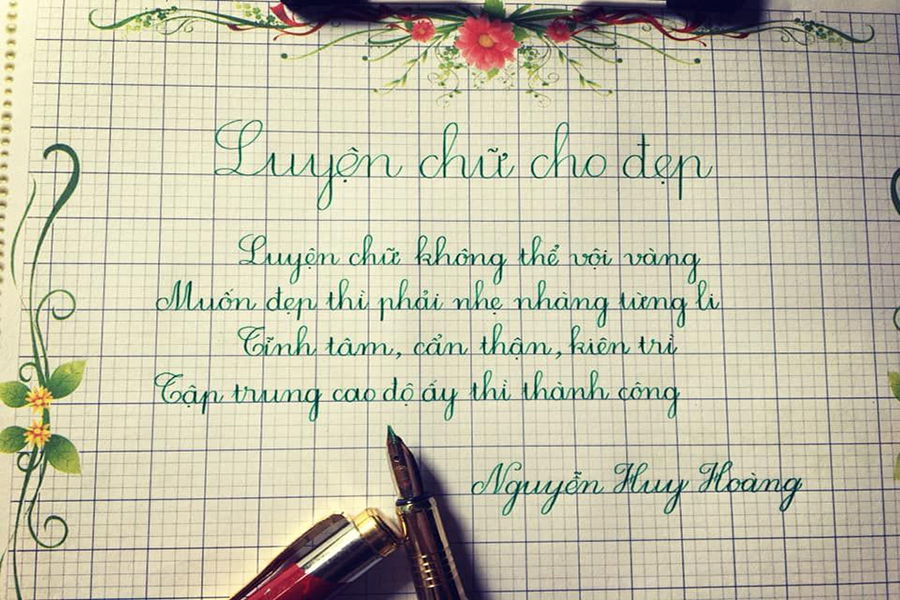 Luyện chữ cho đẹp
Luyện chữ không thể vội vàng
Muốn đẹp thì phải nhẹ nhàng từng li
Tĩnh tâm, cẩn thận, kiên trì
Tập trung cao độ ấy thì thành công
Nguyễn Huy Hoàng